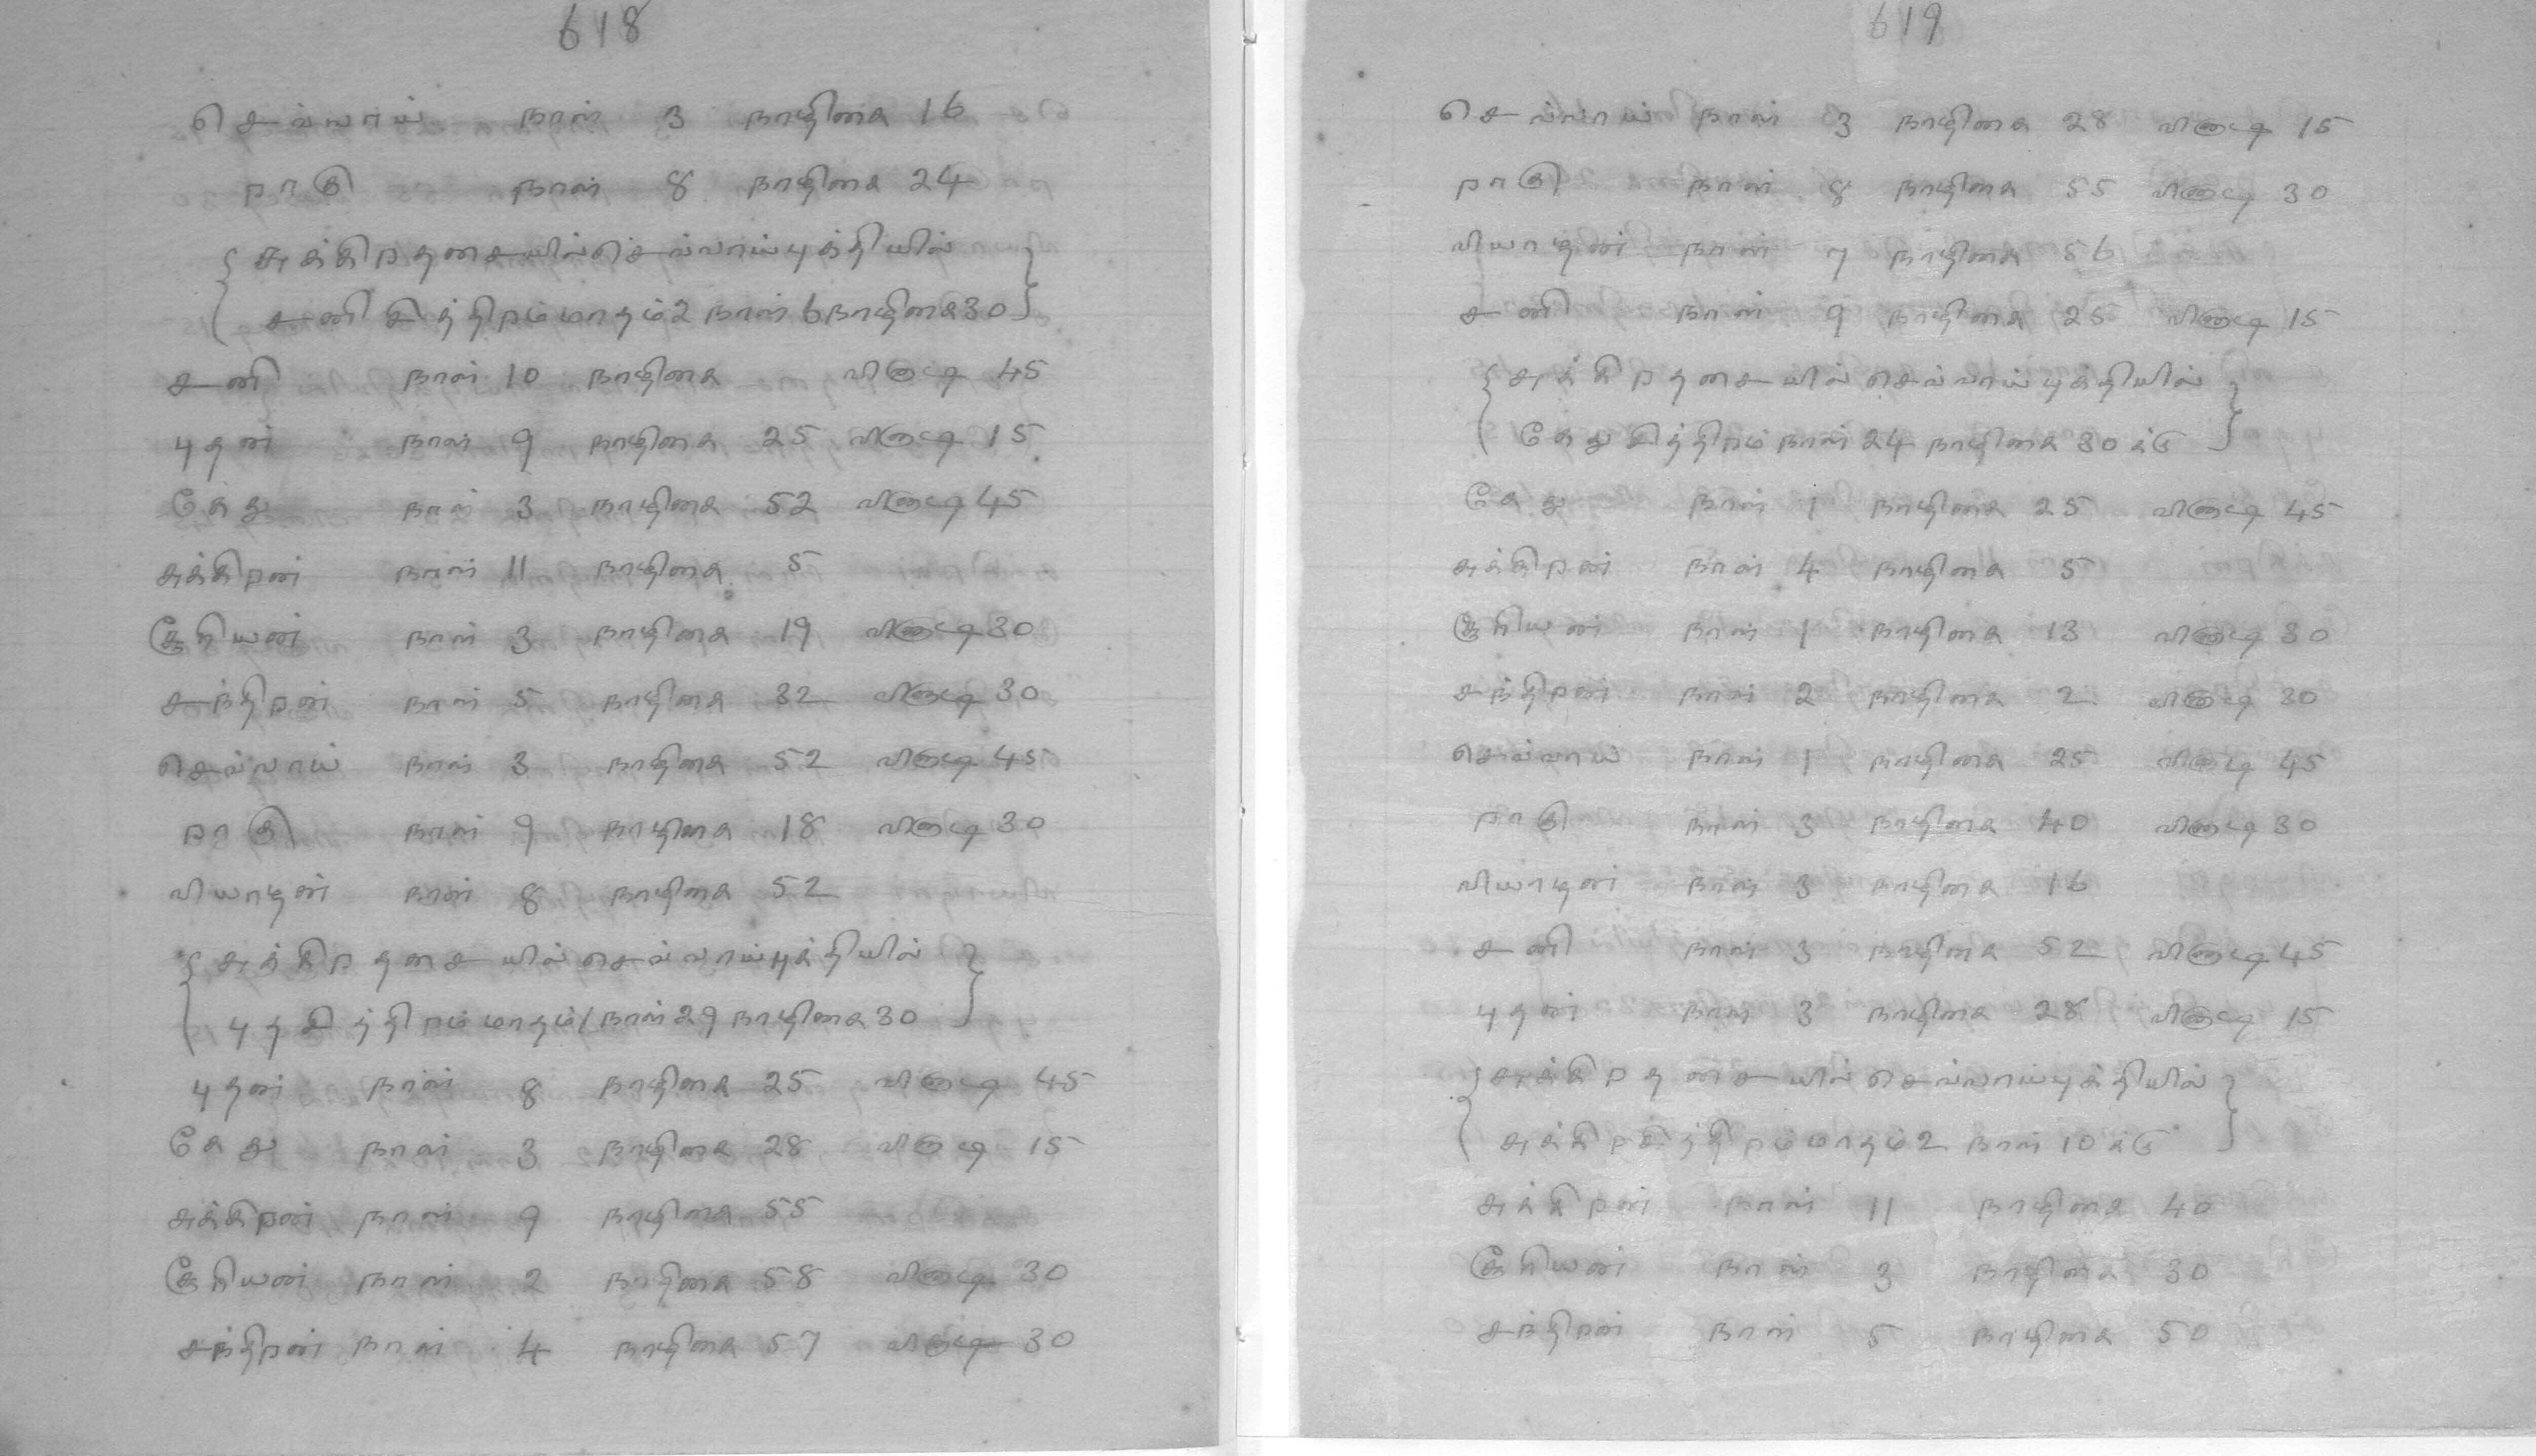 618
செவ்வாய் நாள் 3 நாழிகை 16
ராகு நாள் 8 நாழிகை 24
சுக்கிரதசையில் செவ்வாய்புக்தியில்
சனி சித்திரம் மாதம் 2 நாள் 6 நாழிகை 30
சனி நாள் 10 நாழிகை விநாடி 45
புதன் நாள் 9 நாழிகை 25 விநாடி 15
கேது நாள் 3 நாழிகை 52 விநாடி 45
சுக்கிரன் நாள் 11 நாழிகை 5
சூரியன் நாள் 3 நாழிகை 19 விநாடி 30
சந்திரன் நாள் 5 நாழிகை 32 விநாடி 30
செவ்வாய் நாள் 3 நாழிகை 52 விநாடி 45
ராகு நாள் 9 நாழிகை 18 விநாடி 30
வியாழன் நாள் 8 நாழிகை 52
சுக்கிரதசையில் செவ்வாய்புக்தியில்
புத சித்திரம் மாதம் 1 நாள் 29 நாழிகை 30
புதன் நாள் 8 நாழிகை 25 விநாடி 45
கேது நாள் 3 நாழிகை 28 விநாடி 15
சுக்கிரன் நாள் 9 நாழிகை 55
சூரியன் நாள் 2 நாழிகை 58 விநாடி 30
சந்திரன் நாள் 4 நாழிகை 57 விநாடி 30
619
செவ்வாய் நாள் 3 நாழிகை 28 விநாடி 15
ராகு நாள் 8 நாழிகை 55 விநாடி 30
வியாழன் நாள் 7 நாழிகை 56
சனி நாள் 9 நாழிகை 25 விநாடி 15
சுக்கிரதசையில் செவ்வாய்புக்தியில்
கேது சித்திரம் நாள் 24 நாழிகை 30 க்கு
கேது நாள் 1 நாழிகை 25 விநாடி 45
சுக்கிரன் நாள் 4 நாழிகை 5
சூரியன் நாள் 1 நாழிகை 13 விநாடி 30
சந்திரன் நாள் 2 நாழிகை 2 விநாடி 30
செவ்வாய் நாள் 1 நாழிகை 25 விநாடி 45
ராகு நாள் 3 நாழிகை 40 விநாடி 30
வியாழன் நாள் 3 நாழிகை 16
சனி நாள் 3 நாழிகை 52 விநாடி 45
புதன் நாள் 3 நாழிகை 28 விநாடி 15
சுக்கிரதசையில் செவ்வாய்புக்தியில்
சுக்கிரசித்திரம் மாதம் 2 நாள் 10 க்கு
சுக்கிரன் நாள் 11 நாழிகை 40
சூரியன் நாள் 3 நாழிகை 30
சந்திரன் நாள் 5 நாழிகை 50